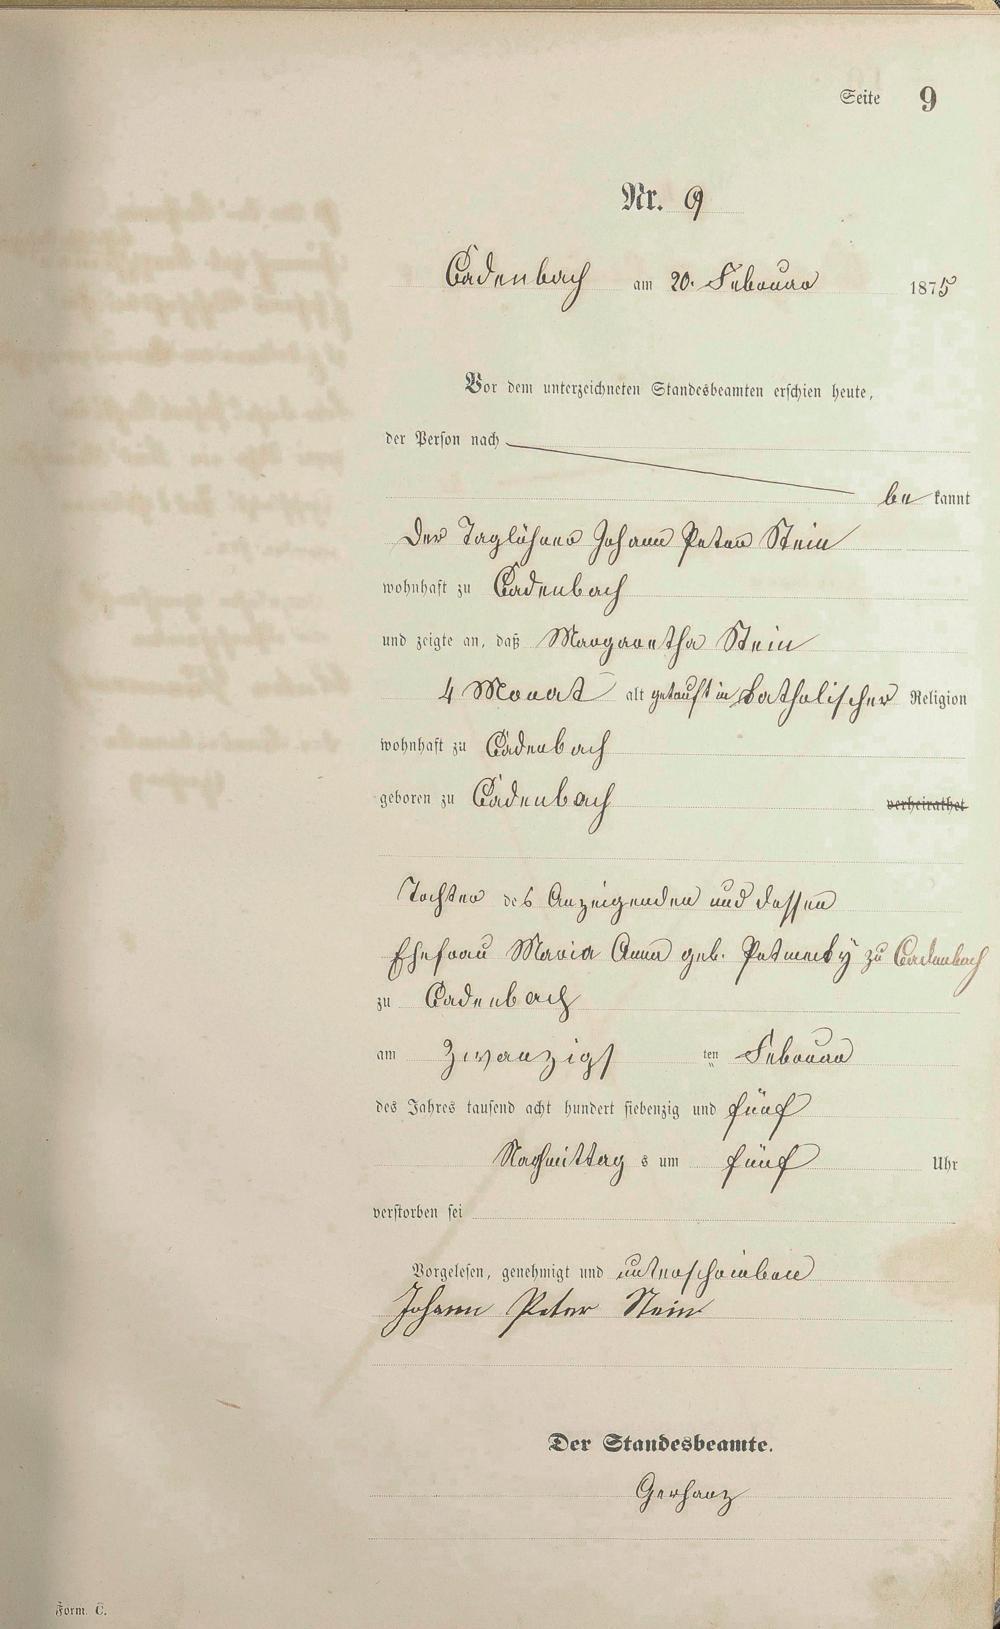 Seite 9
Nr. 9
Cadenbach am 20. Februar 1875
Vor dem unterzeichneten Standesbeamten erschien heute,
der Person nach
be kannt
Der Taglöhner Johann Peter Stein
wohnhaft zu Cadenbach
und zeigte an, daß Margaretha Stein
4 Monat alt getauft in katholischer Religion
wohnhaft zu Cadenbach
geboren zu Cadenbach verheirathet
Tochter des Anzeigenden und dessen
Ehefrau Maria Anna geb. zu Cadenbach
zu Cadenbach
am Zwanzigs ten Februar
des Jahres tausend acht hundert siebenzig und fünf
Nachmittag s um fünf Uhr
verstorben sei
Vorgelesen, genehmigt und unterschrieben
Johann Peter Stein
Der Standesbeamte.
Gerhanz
Form. C.